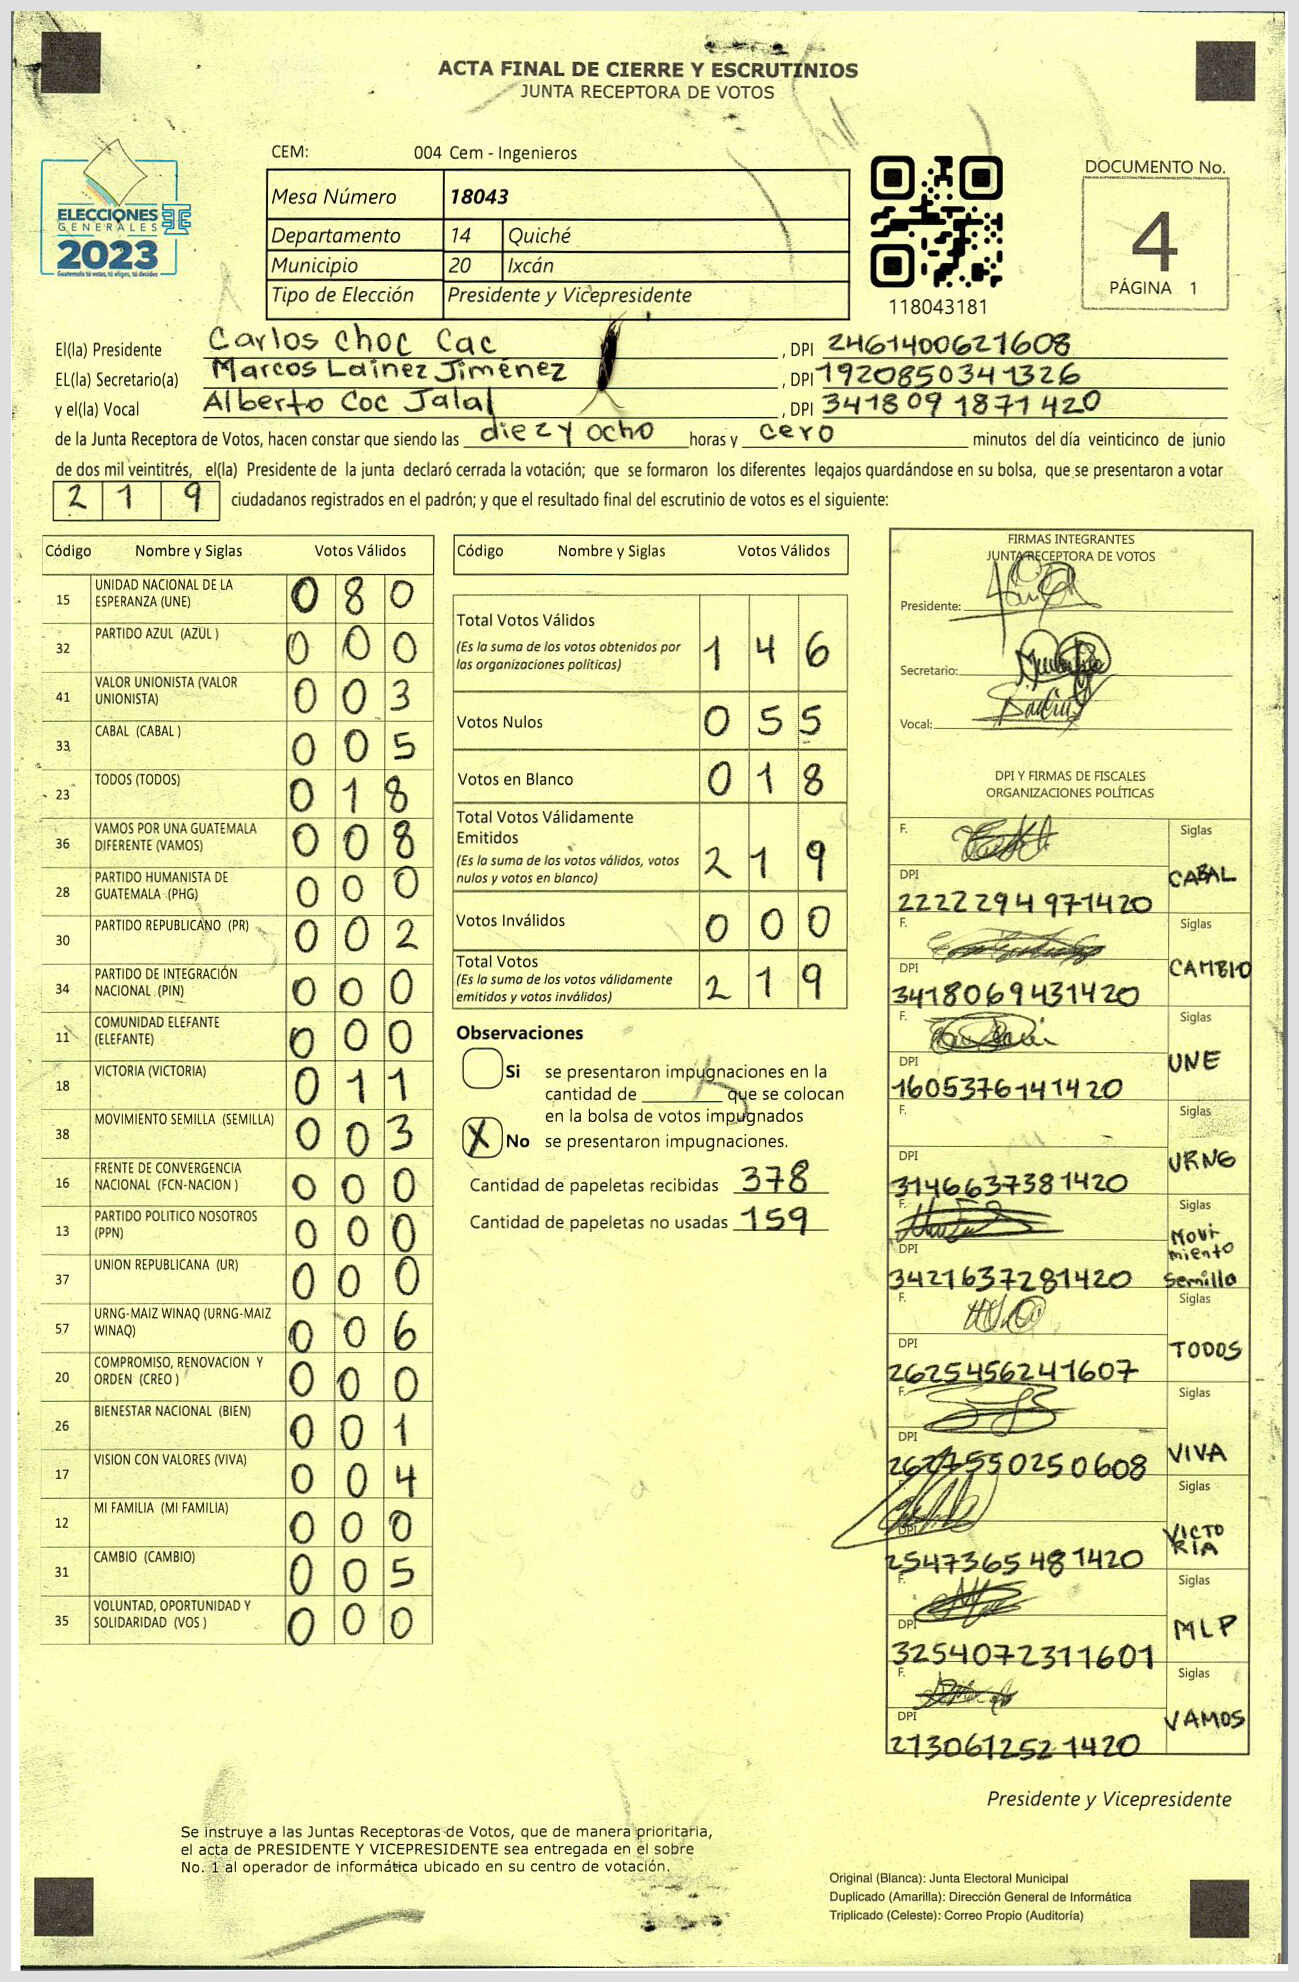 ACTA FINAL DE CIERRE Y ESCRUTINIOS
JUNTA RECEPTORA DE VOTOS
ELECCIONES
GENERALES
2023
Guatemala tú votas, tú eliges, tú decides
CEM: 004 Cem - Ingenieros
Mesa Número 18043
Departamento 14 Quiché
Municipio 20 Ixcán
Tipo de Elección Presidente y Vicepresidente
118043181
DOCUMENTO No.
4
PÁGINA 1
El(la) Presidente Carlos Choc Cac , DPI 2461400621608
EL(la) Secretario(a) Marcos Laínez Jiménez , DPI 1920850341326
y el(la) Vocal Alberto Coc Jalal , DPI 3418091871420
de la Junta Receptora de Votos, hacen constar que siendo las diez y ocho horas y cero minutos del día veinticinco de junio
de dos mil veintitrés, el(la) Presidente de la junta declaró cerrada la votación; que se formaron los diferentes legajos quardándose en su bolsa, que se presentaron a votar
2 1 9 ciudadanos registrados en el padrón; y que el resultado final del escrutinio de votos es el siguiente:
Código Nombre y Siglas Votos Válidos
15 UNIDAD NACIONAL DE LA ESPERANZA (UNE) 0 8 0
32 PARTIDO AZUL (AZUL ) 0 0 0
41 VALOR UNIONISTA (VALOR UNIONISTA) 0 0 3
33 CABAL (CABAL ) 0 0 5
23 TODOS (TODOS) 0 1 8
36 VAMOS POR UNA GUATEMALA DIFERENTE (VAMOS) 0 0 8
28 PARTIDO HUMANISTA DE GUATEMALA (PHG) 0 0 0
30 PARTIDO REPUBLICANO (PR) 0 0 2
34 PARTIDO DE INTEGRACIÓN NACIONAL (PIN) 0 0 0
11 COMUNIDAD ELEFANTE (ELEFANTE) 0 0 0
18 VICTORIA (VICTORIA) 0 1 1
38 MOVIMIENTO SEMILLA (SEMILLA) 0 0 3
16 FRENTE DE CONVERGENCIA NACIONAL (FCN-NACION ) 0 0 0
13 PARTIDO POLITICO NOSOTROS (PPN) 0 0 0
37 UNION REPUBLICANA (UR) 0 0 0
57 URNG-MAIZ WINAQ (URNG-MAIZ WINAQ) 0 0 6
20 COMPROMISO, RENOVACION Y ORDEN (CREO ) 0 0 0
26 BIENESTAR NACIONAL (BIEN) 0 0 1
17 VISION CON VALORES (VIVA) 0 0 4
12 MI FAMILIA (MI FAMILIA) 0 0 0
31 CAMBIO (CAMBIO) 0 0 5
35 VOLUNTAD, OPORTUNIDAD Y SOLIDARIDAD (VOS ) 0 0 0
Código Nombre y Siglas Votos Válidos
Total Votos Válidos
(Es la suma de los votos obtenidos por
las organizaciones políticas) 1 4 6
Votos Nulos 0 5 5
Votos en Blanco 0 1 8
Total Votos Válidamente
Emitidos
(Es la suma de los votos válidos, votos
nulos y votos en blanco) 2 1 9
Votos Inválidos 0 0 0
Total Votos
(Es la suma de los votos válidamente
emitidos y votos inválidos) 2 1 9
Observaciones
Si se presentaron impugnaciones en la
cantidad de que se colocan
en la bolsa de votos impugnados
X No se presentaron impugnaciones.
Cantidad de papeletas recibidas 378
Cantidad de papeletas no usadas 159
FIRMAS INTEGRANTES
JUNTA RECEPTORA DE VOTOS
Presidente:
Secretario:
Vocal:
DPI Y FIRMAS DE FISCALES
ORGANIZACIONES POLÍTICAS
F. Siglas
DPI CABAL
2222294971420
F. Siglas
DPI CAMBIO
3418069431420
F. Siglas
DPI UNE
1605376141420
F. Siglas
DPI URNG
3146637381420
F. Siglas
DPI Movimiento Semilla
3421637281420
F. Siglas
DPI TODOS
2625456241607
F. Siglas
DPI VIVA
2627550250608
F. Siglas
DPI VICTORIA
2547365481420
F. Siglas
DPI MLP
3254072311601
F. Siglas
DPI VAMOS
2130612521420
Presidente y Vicepresidente
Se instruye a las Juntas Receptoras de Votos, que de manera prioritaria,
el acta de PRESIDENTE Y VICEPRESIDENTE sea entregada en el sobre
No. 1 al operador de informática ubicado en su centro de votación.
Original (Blanca): Junta Electoral Municipal
Duplicado (Amarilla): Dirección General de Informática
Triplicado (Celeste): Correo Propio (Auditoría)